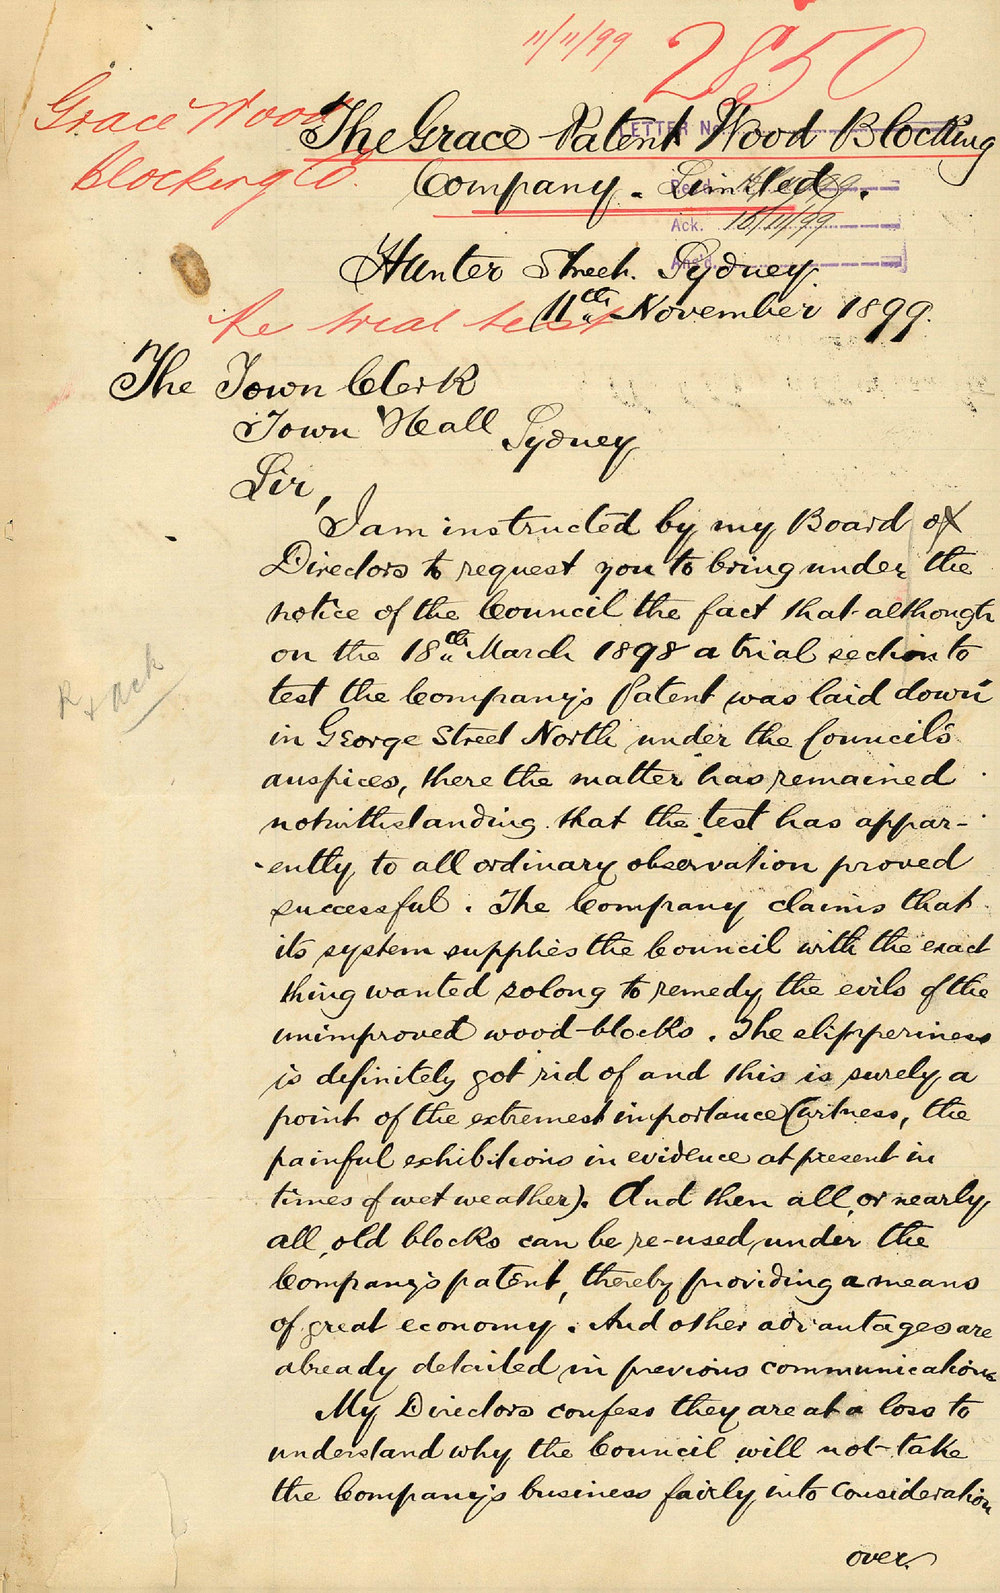 11/11/99 2850
Grace Wood
Blocking Co.
The Grace Patent Wood Blocking
Company. Limited.
LETTER No.
Ack. 16/11/99
Ans'd
Hunter Street. Sydney.
11th November 1899.
Re trial test
The Town Clerk
Town Hall Sydney
Sir,
I am instructed by my Board of
Directors to request you to bring under the
notice of the Council the fact that although
on the 18th March 1898 a trial section to
test the Company's Patent was laid down
in George Street North under the Council's
auspices, there the matter has remained
notwithstanding that the test has appar-
ently to all ordinary observation proved
successful. The Company claims that
its system supplies the Council with the exact
thing wanted so long to remedy the evils of the
unimproved wood-blocks. The slipperiness
is definitely got rid of and this is surely a
point of the extremest importance (witness, the
painful exhibitions in evidence at present in
times of wet weather). And then all, or nearly
all, old blocks can be re-used, under the
Company's patent, thereby providing a means
of great economy. And other advantages are
already detailed in previous communications
My Directors confess they are at a loss to
understand why the Council will not take
the Company's business fairly into consideration
over